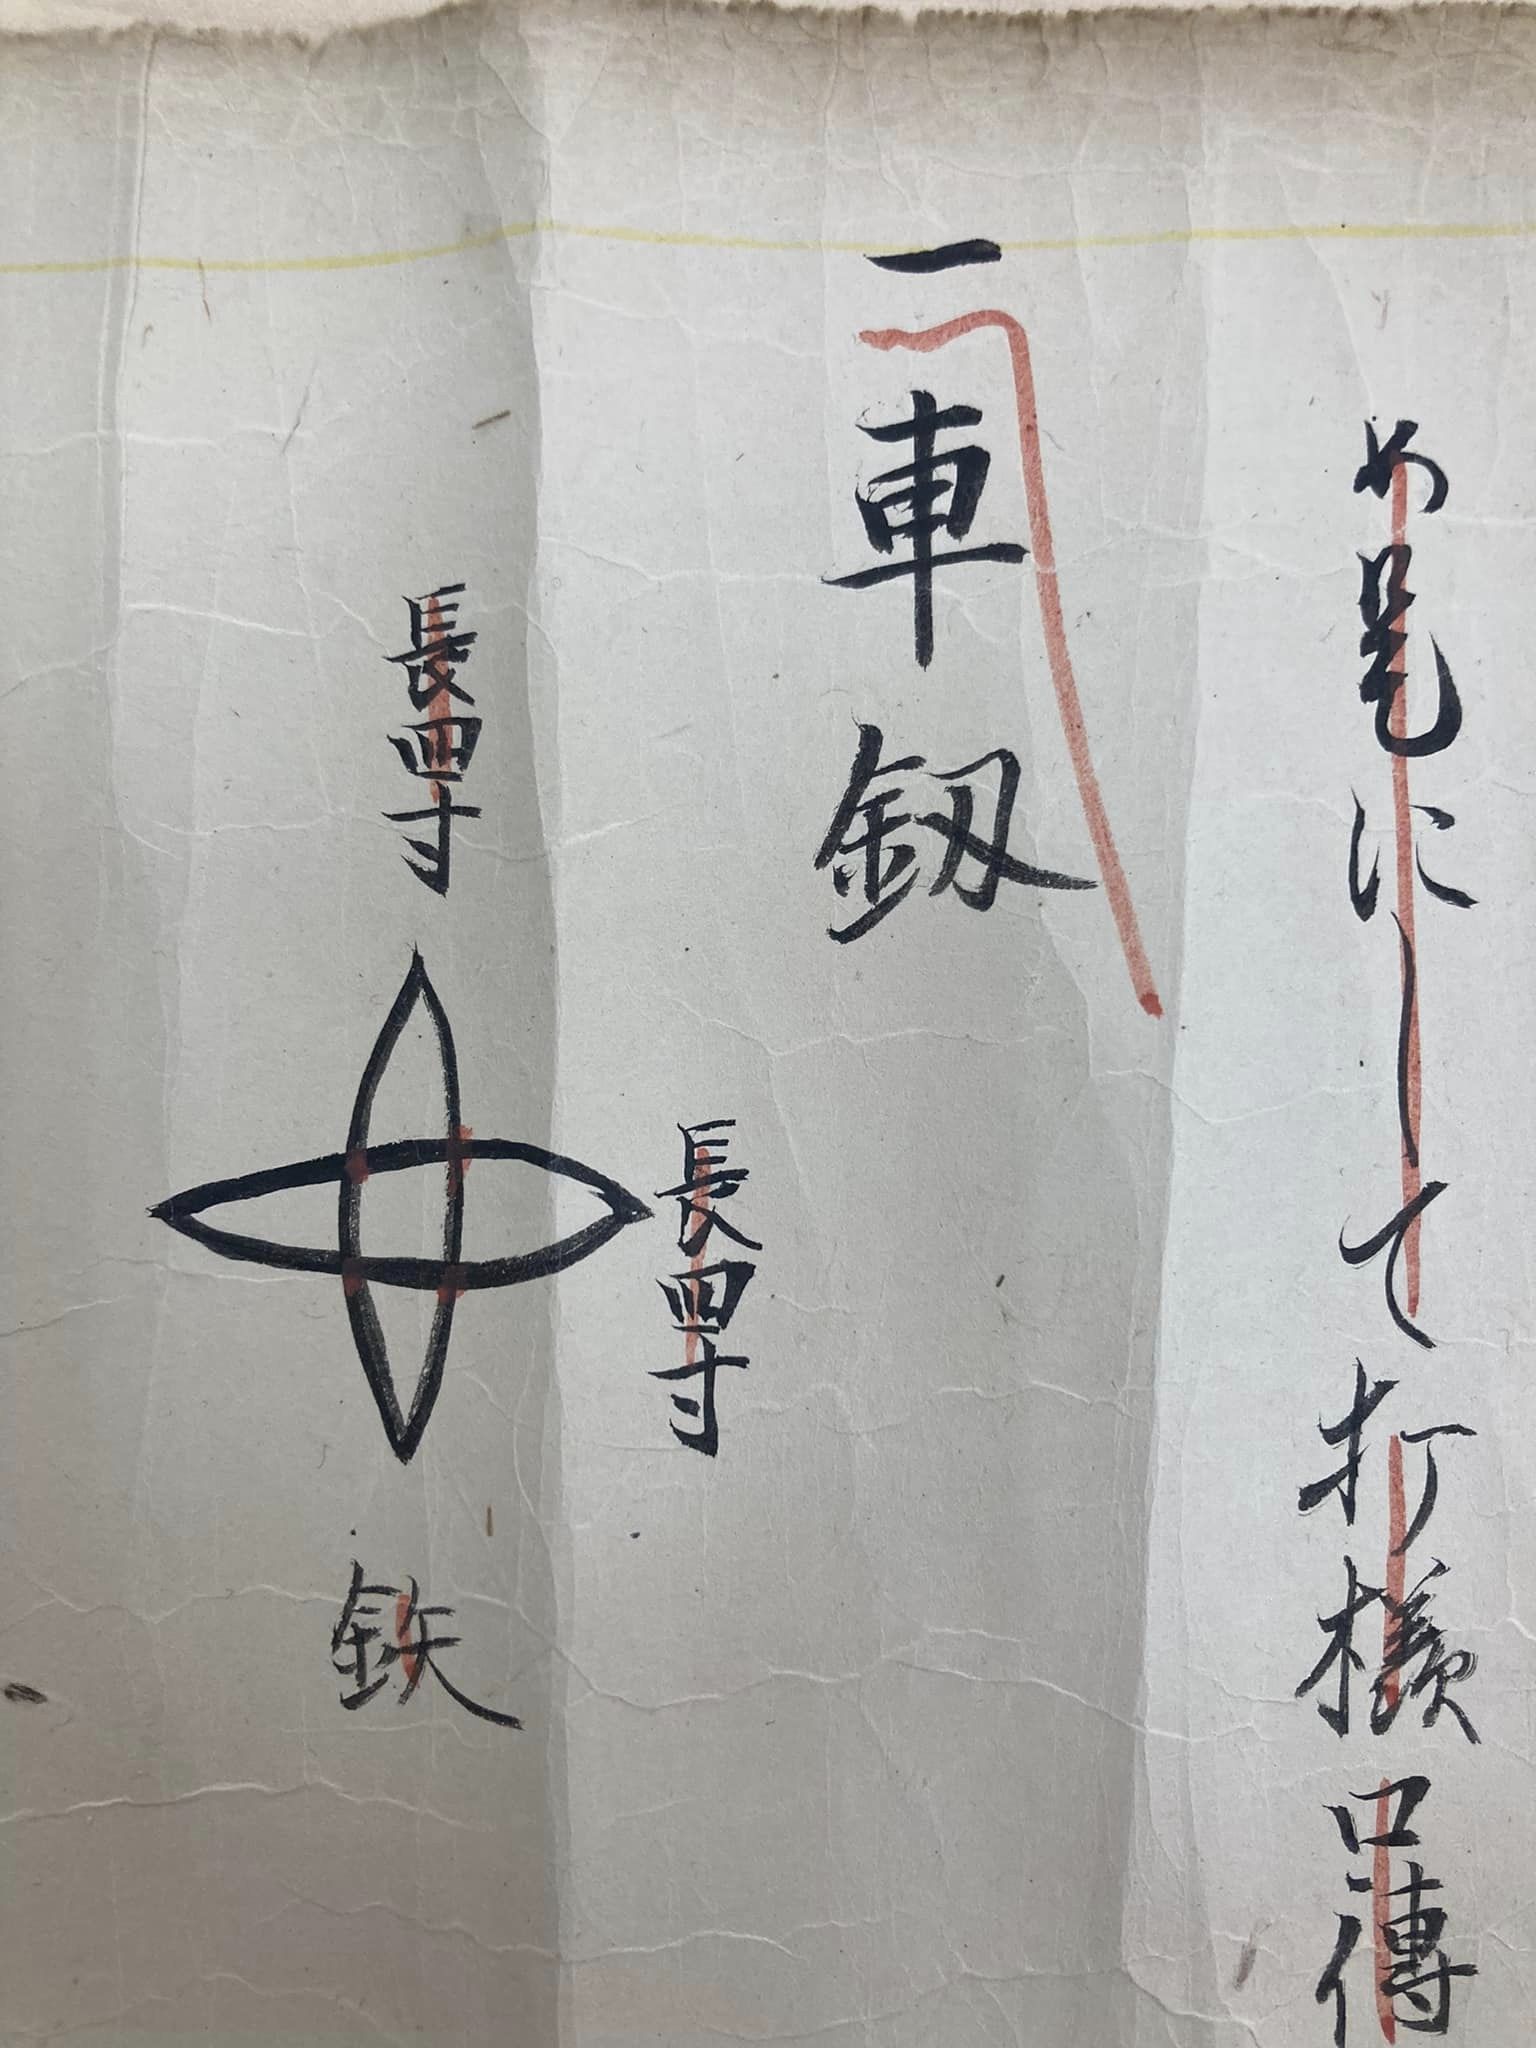 如是にして打様口傳
一 車釼
長四寸
長四寸
鉄